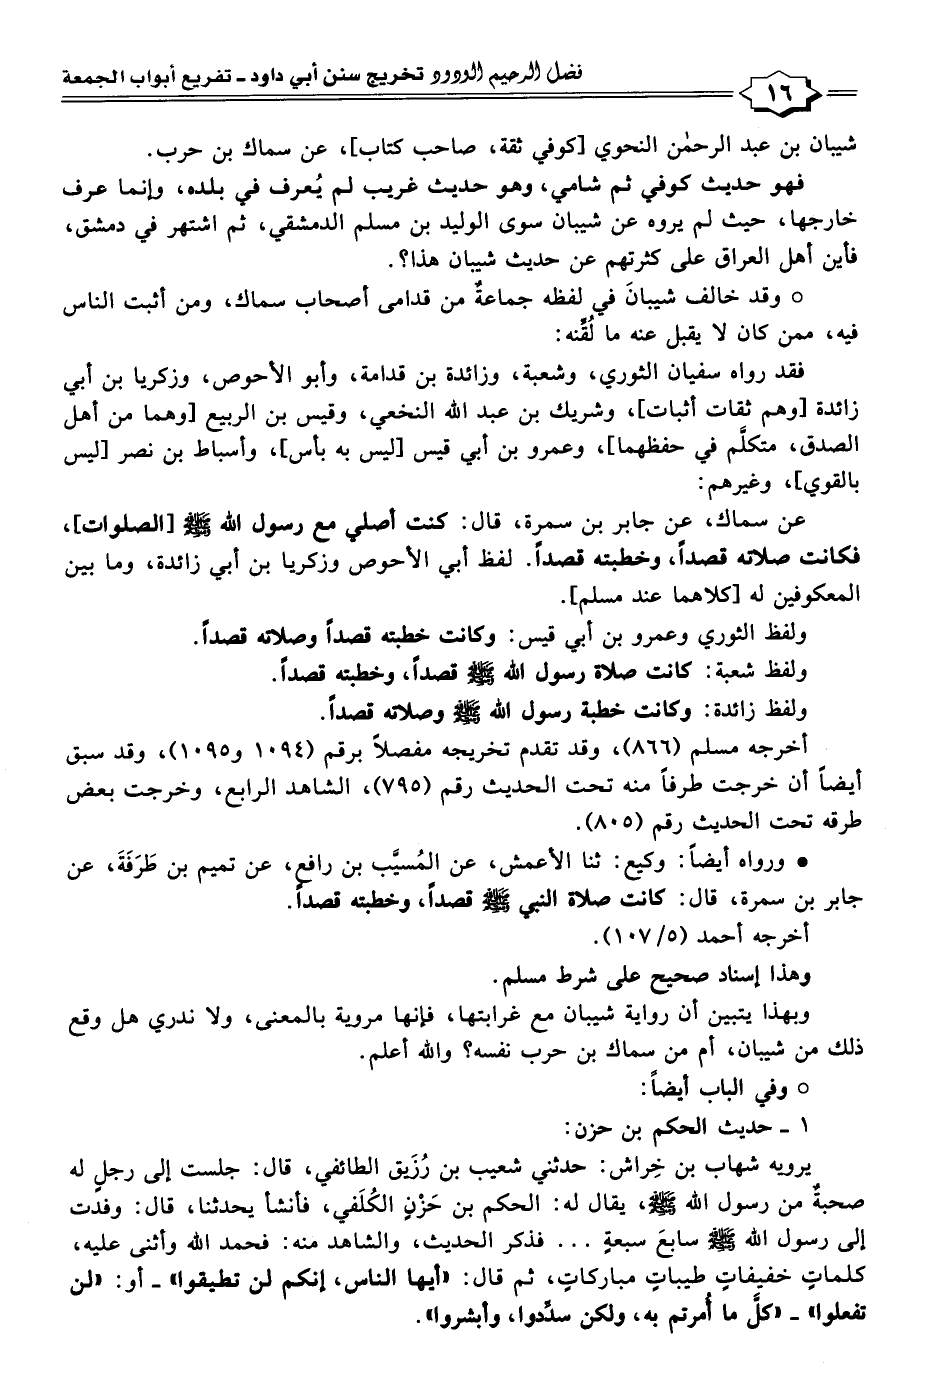 فضل الرحيم الودود تخريج سنن أبي داود ـ تفريع أبواب الجمعة
١٦
شيبان بن عبد الرحمٰن النحوي [كوفي ثقة، صاحب كتاب]، عن سماك بن حرب.
فهو حديث كوفي ثم شامي، وهو حديث غريب لم يُعرف في بلده، وإنما عرف
خارجها، حيث لم يروه عن شيبان سوى الوليد بن مسلم الدمشقي، ثم اشتهر في دمشق،
فأين أهل العراق على كثرتهم عن حديث شيبان هذا؟.
○ وقد خالف شيبانَ في لفظه جماعةٌ من قدامى أصحاب سماك، ومن أثبت الناس
فيه، ممن كان لا يقبل عنه ما لُقِّنه:
فقد رواه سفيان الثوري، وشعبة، وزائدة بن قدامة، وأبو الأحوص، وزكريا بن أبي
زائدة [وهم ثقات أثبات]، وشريك بن عبد الله النخعي، وقيس بن الربيع [وهما من أهل
الصدق، متكلَّم في حفظهما]، وعمرو بن أبي قيس [ليس به بأس]، وأسباط بن نصر [ليس
بالقوي]، وغيرهم:
عن سماك، عن جابر بن سمرة، قال: كنت أصلي مع رسول الله ﷺ [الصلوات]،
فكانت صلاته قصداً، وخطبته قصداً. لفظ أبي الأحوص وزكريا بن أبي زائدة، وما بين
المعكوفين له [كلاهما عند مسلم].
ولفظ الثوري وعمرو بن أبي قيس: وكانت خطبته قصداً وصلاته قصداً.
ولفظ شعبة: كانت صلاة رسول الله ﷺ قصداً، وخطبته قصداً.
ولفظ زائدة: وكانت خطبة رسول الله ﷺ وصلاته قصداً.
أخرجه مسلم (٨٦٦)، وقد تقدم تخريجه مفصلاً برقم (١٠٩٤ و١٠٩٥)، وقد سبق
أيضاً أن خرجت طرفاً منه تحت الحديث رقم (٧٩٥)، الشاهد الرابع، وخرجت بعض
طرقه تحت الحديث رقم (٨٠٥).
• ورواه أيضاً: وكيع: ثنا الأعمش، عن المُسيَّب بن رافع، عن تميم بن طَرَفَةَ، عن
جابر بن سمرة، قال: كانت صلاة النبي ﷺ قصداً، وخطبته قصداً.
أخرجه أحمد (٥/١٠٧).
وهذا إسناد صحيح على شرط مسلم.
وبهذا يتبين أن رواية شيبان مع غرابتها، فإنها مروية بالمعنى، ولا ندري هل وقع
ذلك من شيبان، أم من سماك بن حرب نفسه؟ والله أعلم.
○ وفي الباب أيضاً:
١ ـ حديث الحكم بن حزن:
يرويه شهاب بن خِراش: حدثني شعيب بن رُزَيق الطائفي، قال: جلست إلى رجلٍ له
صحبةٌ من رسول الله ﷺ، يقال له: الحكم بن حَزْنٍ الكُلَفي، فأنشأ يحدثنا، قال: وفدت
إلى رسول الله ﷺ سابعَ سبعةٍ ... فذكر الحديث، والشاهد منه: فحمد الله وأثنى عليه،
كلماتٍ خفيفاتٍ طيباتٍ مباركاتٍ، ثم قال: «أيها الناس، إنكم لن تطيقوا» ـ أو: «لن
تفعلوا» ـ «كلَّ ما أُمرتم به، ولكن سدِّدوا، وأبشروا».